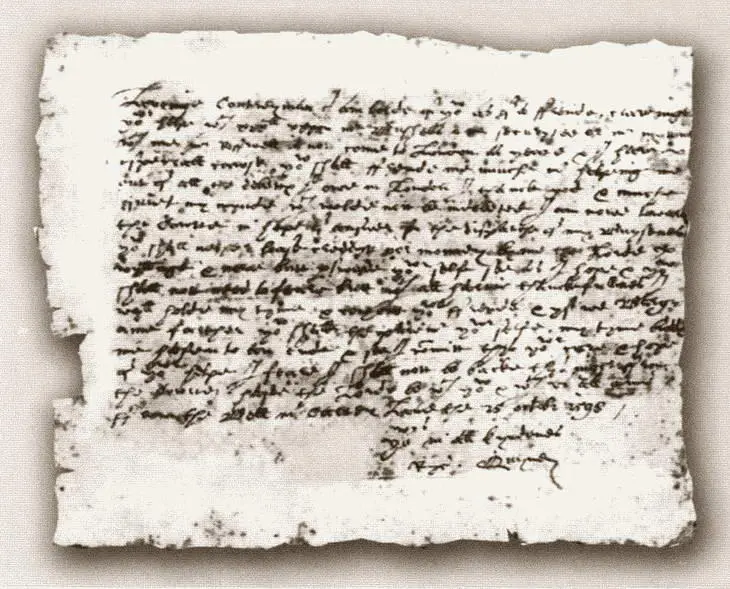 Loveinge Contreyman I am bolde of yow as of a ffrende, craveinge
yowr helpe with xxxll vppon mr Bushells & my securytee or mr myttons
with me mr Rosswell is nott come to London as yeate & I have
especiall cawse yow shall ffrende me muche in helpeing me
out of all the debttes I owe in London I thancke god & muche
quiet my mynde which wolde nott be indebeted I am nowe towardes
the Cowrte in hope of answer for the dispatche of my Buysenes
yow shall nether loase creddytt nor monney by me the Lorde
wyllinge & nowe butt perswade yowr selfe soe as I hope & yow
shall nott need to feare butt with all hartie thanckefullnes I
wyll holde my tyme & content yowr ffrende & yf we Bargaine
farther yow shall be the paiemaster yowr selfe my tyme biddes
me hasten to an ende & soe I committ thys yowr care & hope
of yowr helpe I feare I shall nott be backe thys night ffrom
the Cowrte haste the Lorde be with yow & with vs all amen
ffrom the Bell in Carter Lane the 25 octobr 1598
yowrs in all kyndenes
Ryc. Quyney